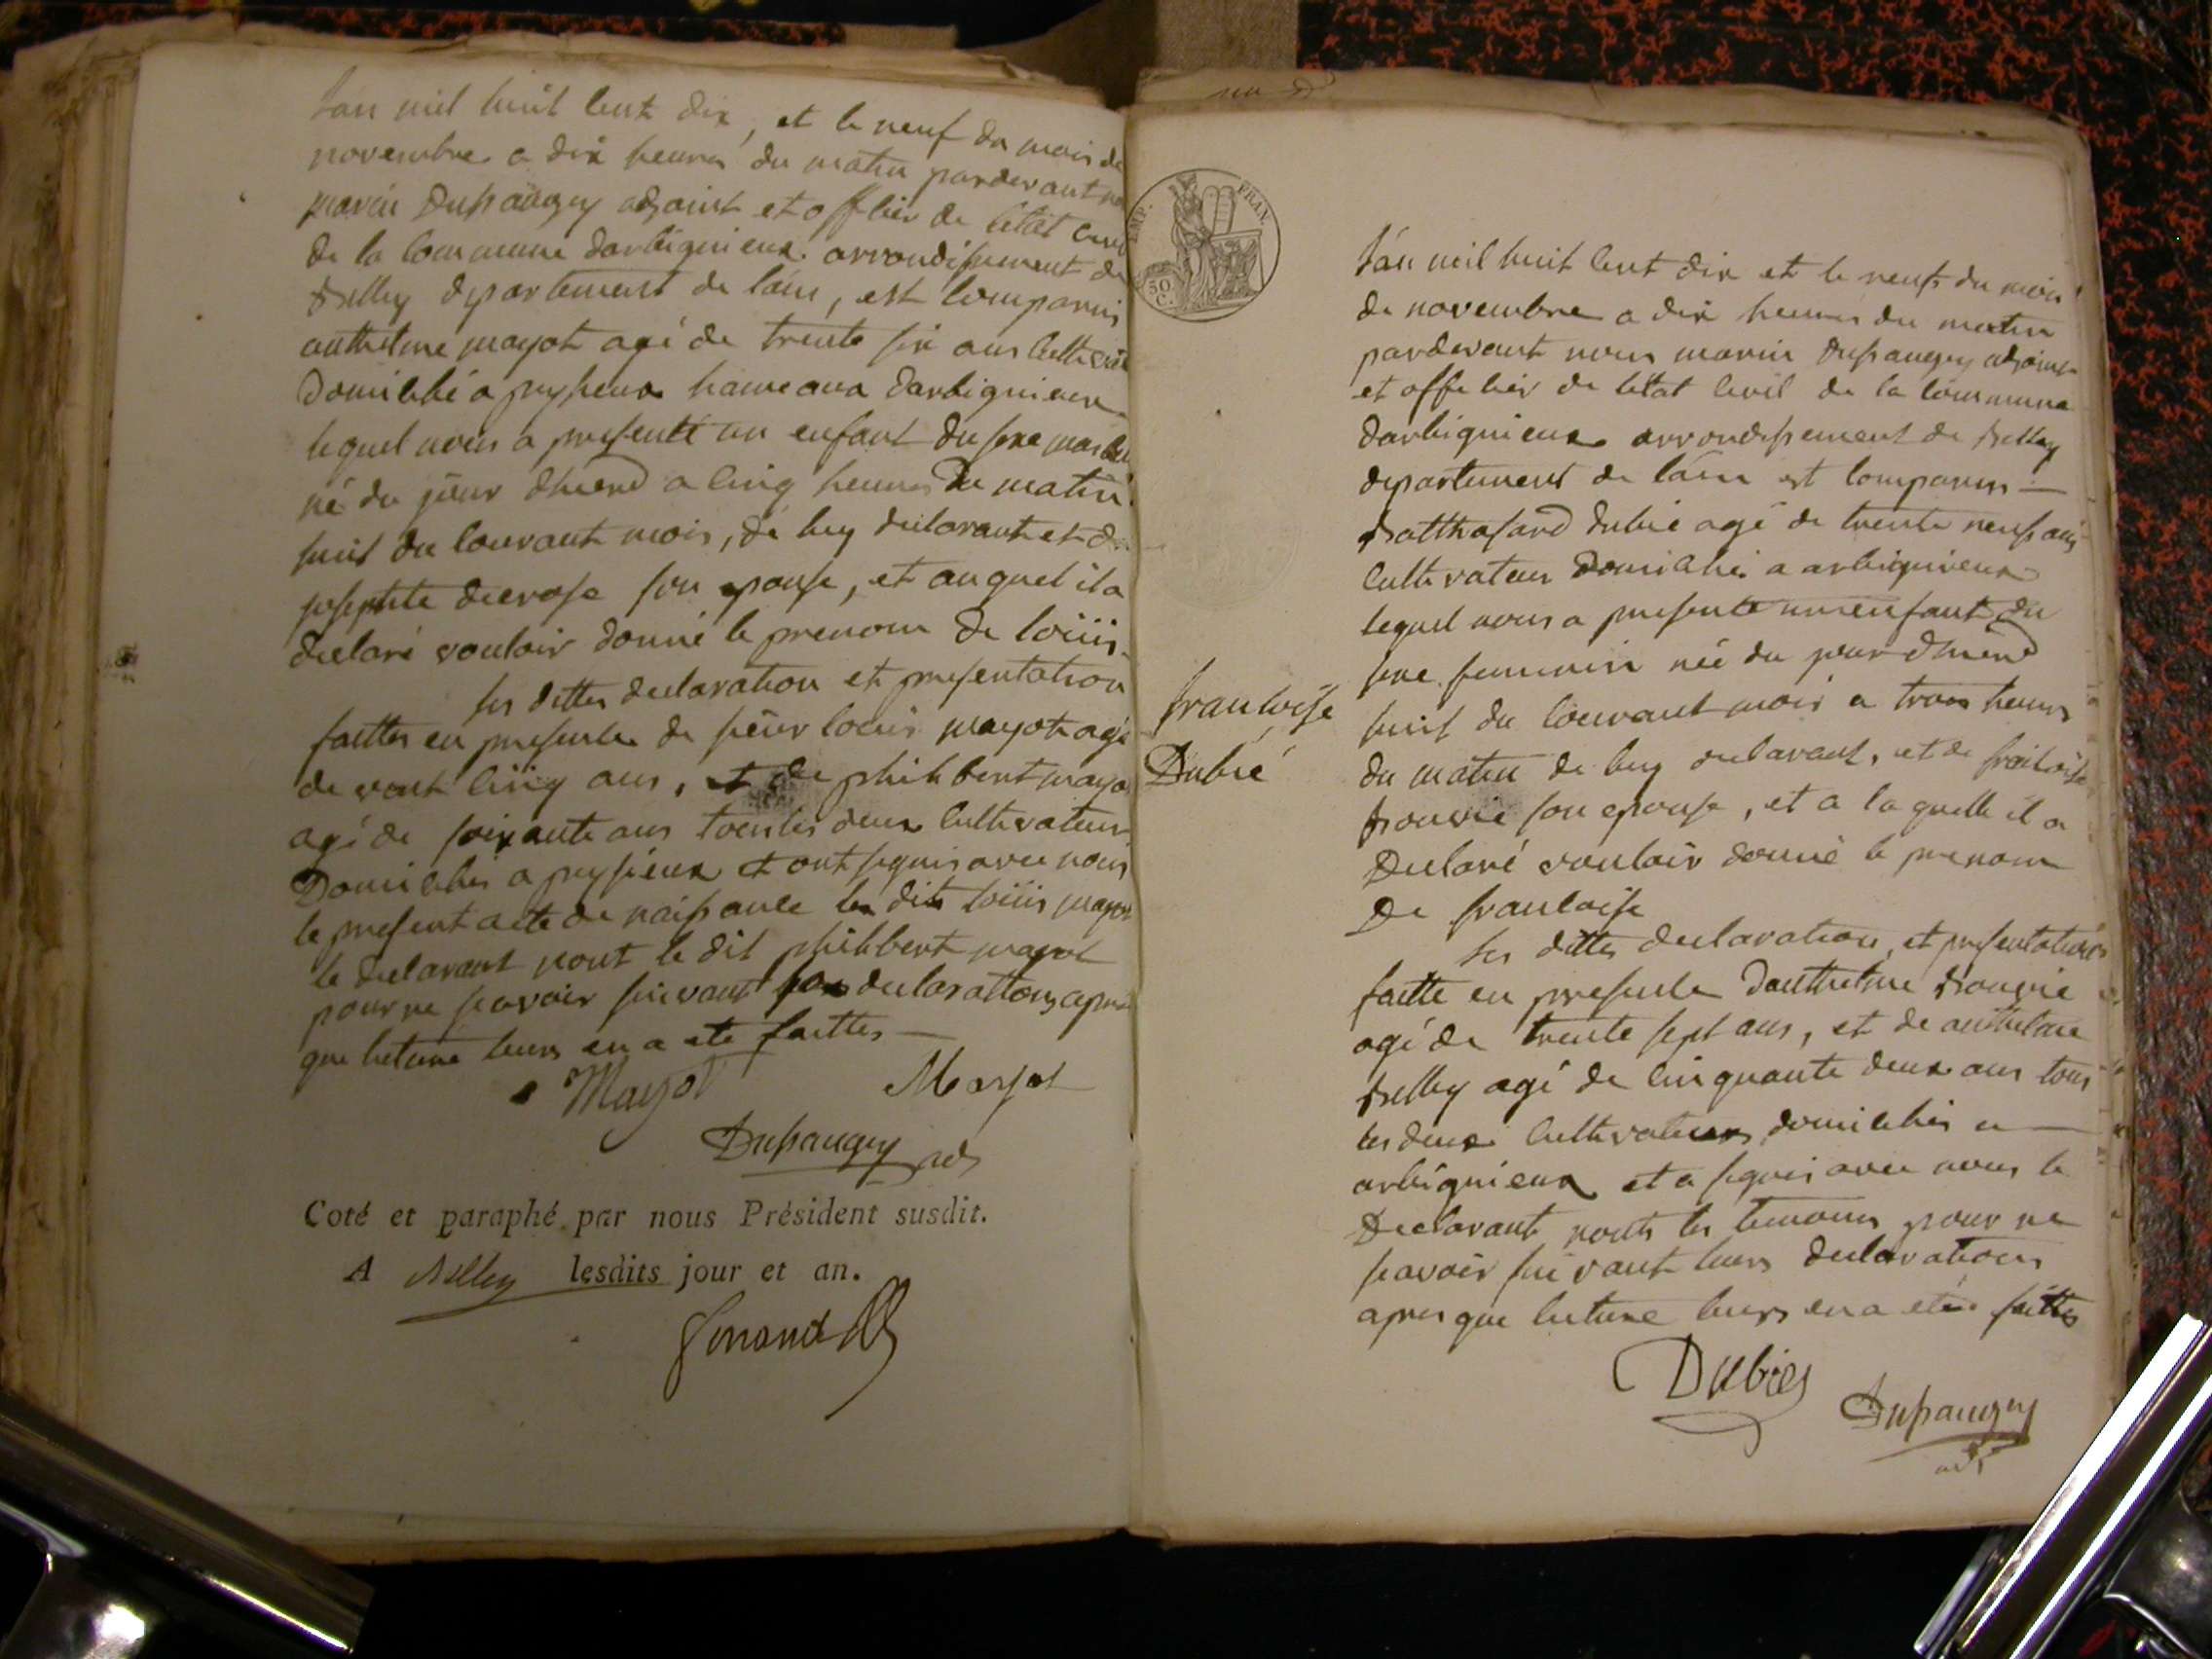 Lan mil huit cent dix, et le neuf du mois de
novembre a dix heures du matin pardevant
marin Dupaugey adjoint et officier de l'état civil
de la commune darbignieux arrondissement de
Belley departement de lain, est comparus
anthelme mayot agé de trente six ans
Domicilié a peysieux hameaux darbignieux
lequel nous a presenté un enfant du sexe masculin
né du jour dhierd a cinq heures du matin
huit du courant mois, de luy declarant et de
josephte decrose son epouse, et au quel il a
declaré vouloir donné le prenom de loüis
les dittes declaration et presentation
faittes en presence de sieur loüis mayot agé
de vent cinq ans, et de philibert mayot
agé de soixante ans tous les deux cultivateurs
Domiciliés a peysieux et ont signés avec nous
le present acte de naissance le dit loüis mayot
le declarant nont le dit philibert mayot
pour ne scavoir suivant declarations apres
que lecture leurs en a eté faittes
Mayot Mayot
Dupaugey adj
Coté et paraphé par nous Président susdit.
A Belley lesdits jour et an.
EMP. FRAN.
50 C.
francoise
Dubié
Lan mil huit cent dix et le neuf du mois
de novembre a dix heures du matin
pardevant nous marin Dupaugey adjoint
et officier de letat civil de la commune
darbignieux arrondissement de Belley
departement de lain est comparus
Balthasard dubié agé de trente neuf ans
cultivateur Domicilié a arbignieux
lequel nous a presenté un enfant du
sexe feminin née du jour dhierd
huit du courant mois a trois heures
du matin de luy declarant, et de francoise
Bouvié son epouse, et a la quelle il a
Declaré vouloir donné le prenom
De francoise
les dittes declaration, et presentations
faitte en presence danthelme Bouvié
agé de trente sept ans, et de anthelme
Belley agé de cinquante deux ans tous
les deux cultivateurs domiciliés a
arbignieux et a signés avec nous le
Declarant nonts les temoins pour ne
scavoir suivant leurs declarations
apres que lecture leurs en a etée faittes
Dubies
Dupaugey
adj